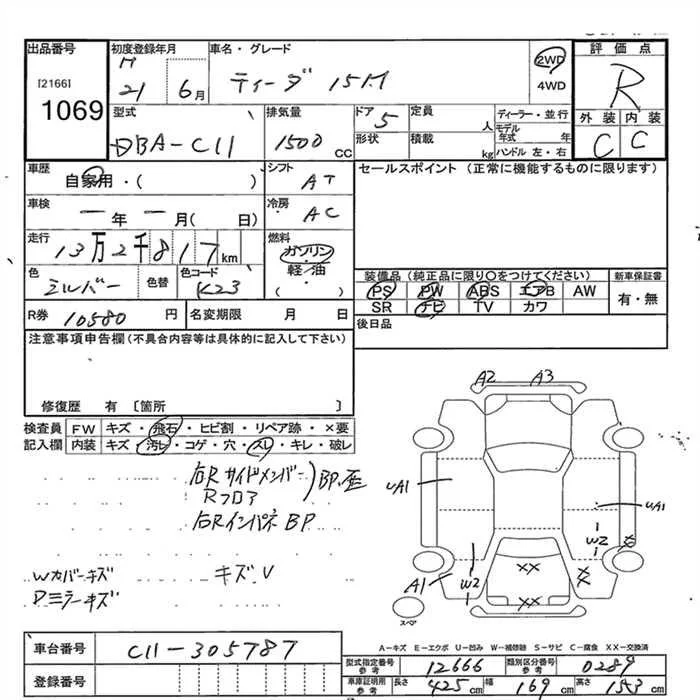 出品番号 初度登録年月 車名・グレード 2WD 評価点
[2166] H 21 6月 ティーダ 15M 4WD R
1069 外装 内装
型式 排気量 ドア 5 定員 人 ディーラー・並行 C C
DBA-C11 1500 CC 形状 積載 kg モデル年式 年
ハンドル 左・右
車歴 自家用・( ) シフト AT セールスポイント (正常に機能するものに限ります)
車検 一年一月(日) 冷房 AC
走行 13万2千817km 燃料 ガソリン
軽油
( )
色 シルバー 色替 色コード K23 装備品(純正品に限り〇をつけてください) 新車保証書
PS PW ABS エアB AW 有・無
SR ナビ TV カワ
R券 10580円 名変期限 月 日 後日品
注意事項申告欄(不具合内容等は具体的に記入して下さい)
修復歴 有 [箇所 ]
検査員 FW キズ・飛石・ヒビ割・リペア跡・×要
記入欄 内装 キズ・汚レ・コゲ・穴・スレ・キレ・破レ
右Rサイドメンバー
Rフロア
BP、歪
右Rインパネ BP
Wカバーキズ キズ、V
Dミラーキズ
A2 A3
UA1
UA1
W2
W2
A1
XX
XX
XX
スペア
A-キズ E-エクボ U-凹み W-補修跡 S-サビ C-腐食 XX-交換済
車台番号 C11-305787
型式指定番号 参考 12666 類別区分番号 参考 0289
登録番号
車庫証明用 参考 長さ 425cm 幅 169cm 高さ 153cm